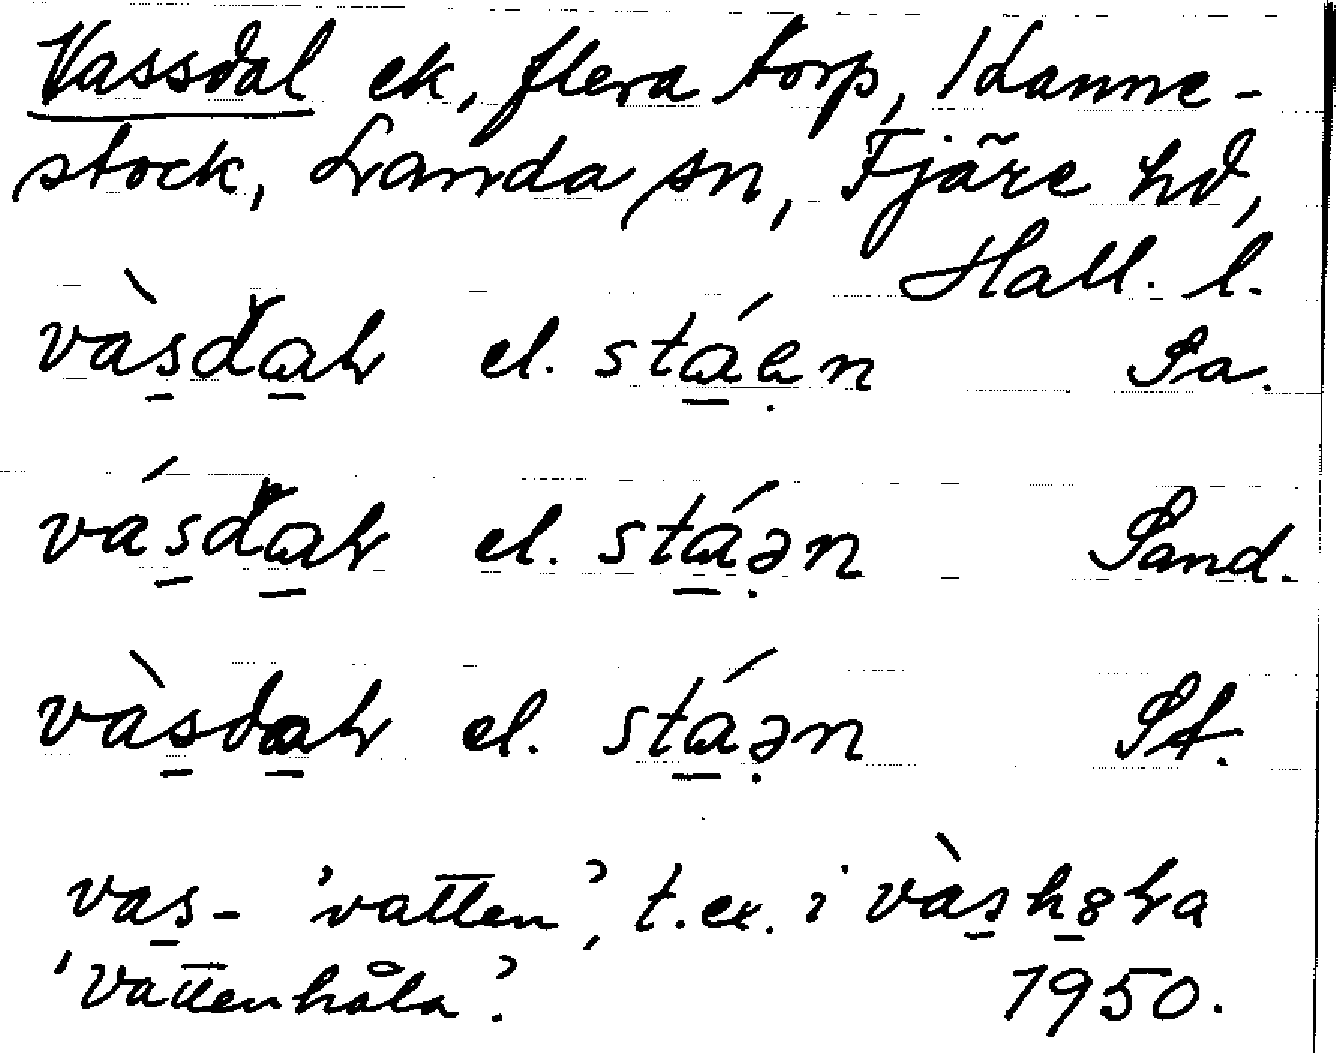 Vassdal ek, flera torp, Idanne-
stock, Landa sn, Fjäre hd,
Hall. l.
vàsdaɫ el. stáen Sa.
vásdaɫ el. stáən Sand.
vàsdaɫ el. stáən Sf.
vas- 'vatten', t.ex. i vàsh8ɫa
'Vattenhåla'. 1950.